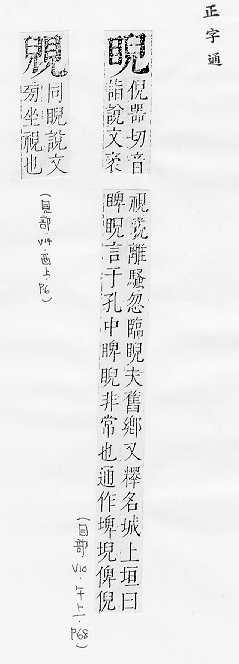 正字通
睨
倪器切音
詣說文衺
視離騷忽臨睨夫舊鄉又釋名城上垣曰
睥睨言于孔中睥睨非常也通作埤堄俾倪
(目部.V10.午上.P68)
同睨說文
旁坐視也
(見部.V14.酉上.P6)